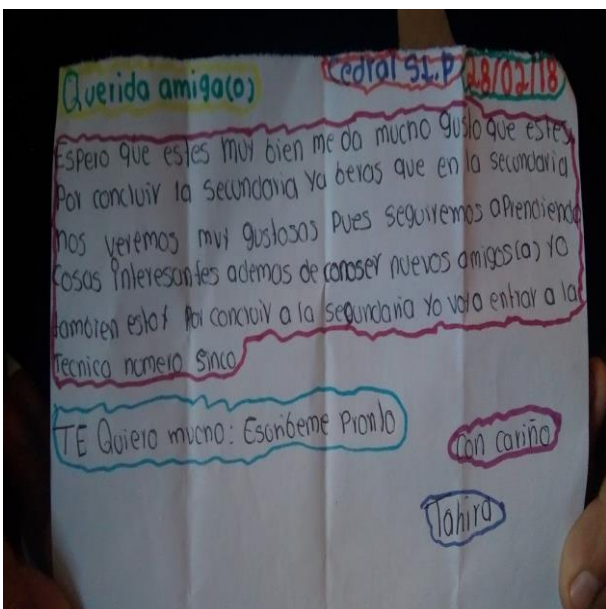 Querido amiga(o) Cedral S.L.P 28/02/18
Espero que estes muy bien me da mucho gusto que estes
Por concluir la secundaria Ya beras que en la secundaria
nos veremos muy gustosos pues seguiremos aprendiendo
cosas interesantes ademas de conoser nuevos amigos(a) Yo
tambien estoy Por concluir a la segundaria Yo voy a entrar a la
tecnica numero sinco
TE Quiero mucho: Escribeme Pronto
con cariño
Tahira